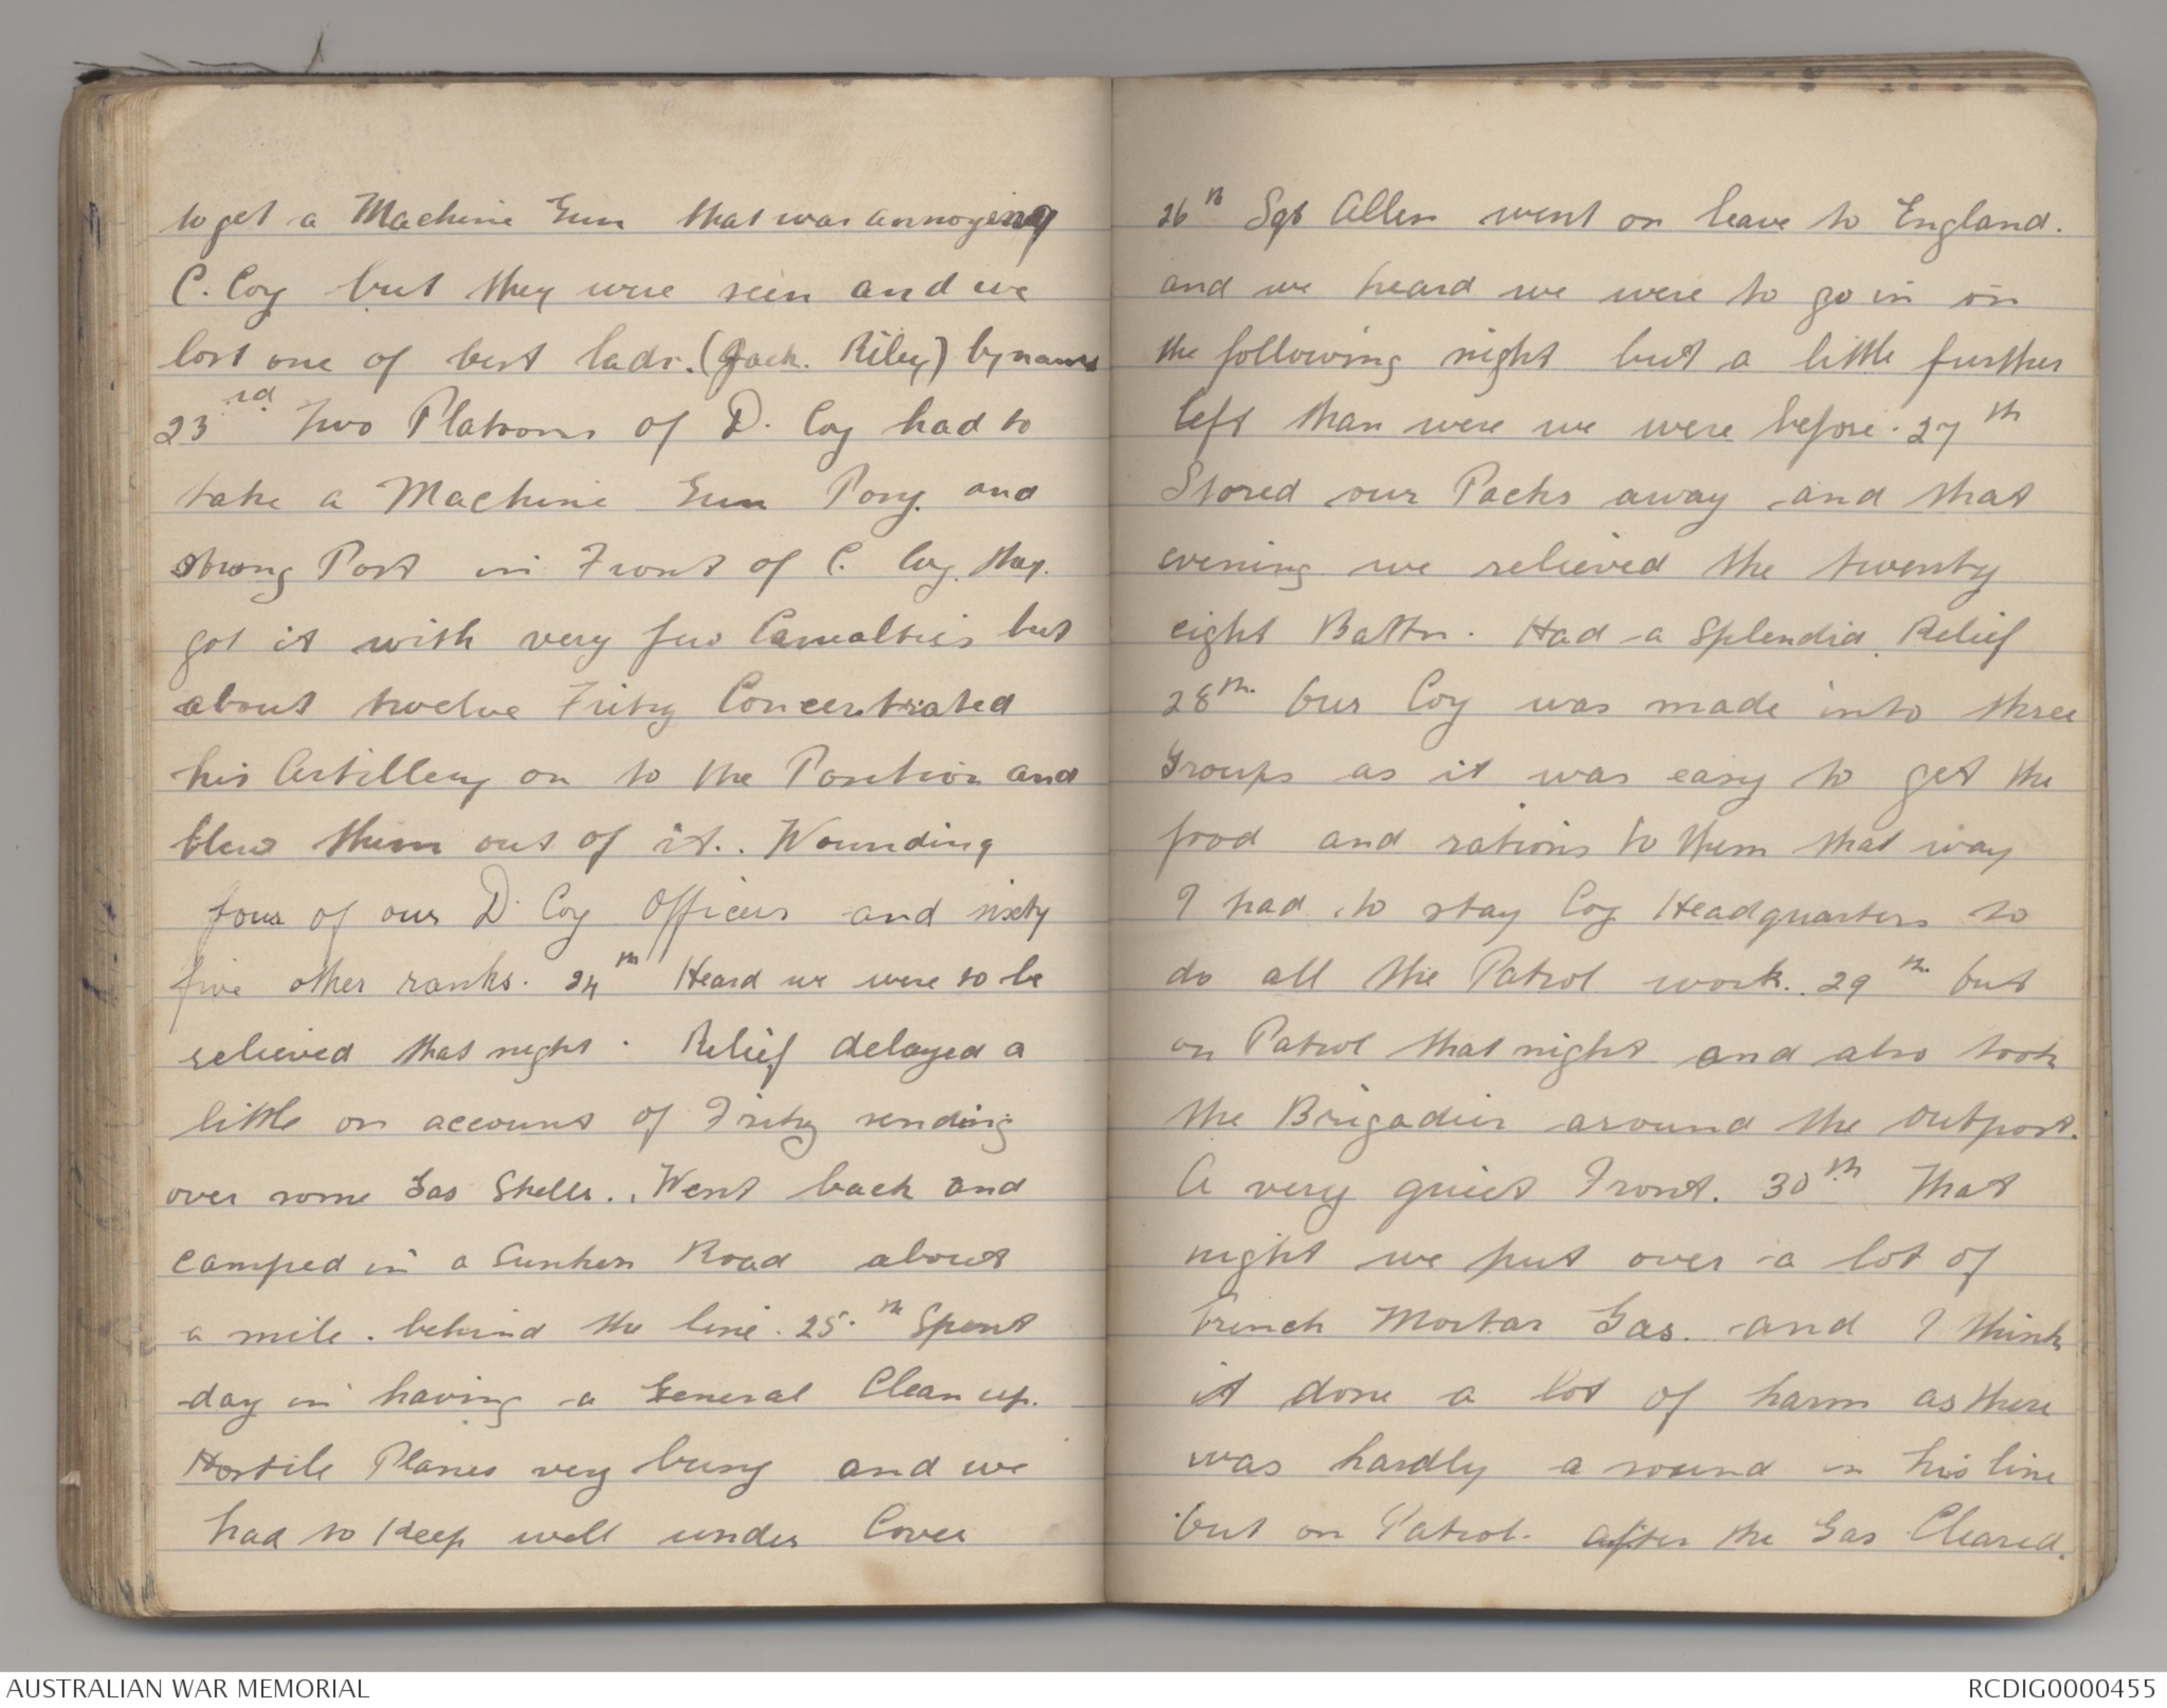 to get a Machine Gun that was annoying
C. Coy but they were seen and we
lost one of best lads. (Jack. Riley) by name
23rd Two Platoons of D. Coy had to
take a Machine Gun Posy. and
strong Post in Front of C. Coy. they.
got it with very few Casualties but
about twelve Fritz Concentrated
his Artillery on to the Position and
blew them out of it.. Wounding
four of our D. Coy Officers and sixty
five other ranks. 24th Heard we were to be
relieved that night. Relief delayed a
little on account of Fritz sending
over some Gas Shells.. Went back and
camped in a Sunken Road about
a mile. behind the line. 25.th Spent
day in having a General Clean up.
Hostile Planes very busy and we
had to Keep well under Cover
26th Sgt Allen went on leave to England.
and we heard we were to go in on
the following night but a little further
left than were we were before. 27th
Stored our Packs away and that
evening we relieved the twenty
eight Battn. Had a Splendid Relief
28th. Our Coy was made into three
Groups as it was easy to get the
food and rations to them that way
I had to stay Coy Headquarters to
do all the Patrol work.. 29th. Out
on Patrol that night and also took
the Brigadier around the outpost.
A very quiet Front. 30th That
night we put over a lot of
Trench Mortar Gas. and I think
it done a lot of harm as there
was hardly a sound in his line
Out on Patrol. after the Gas Cleared.
AUSTRALIAN WAR MEMORIAL
RCDIG0000455